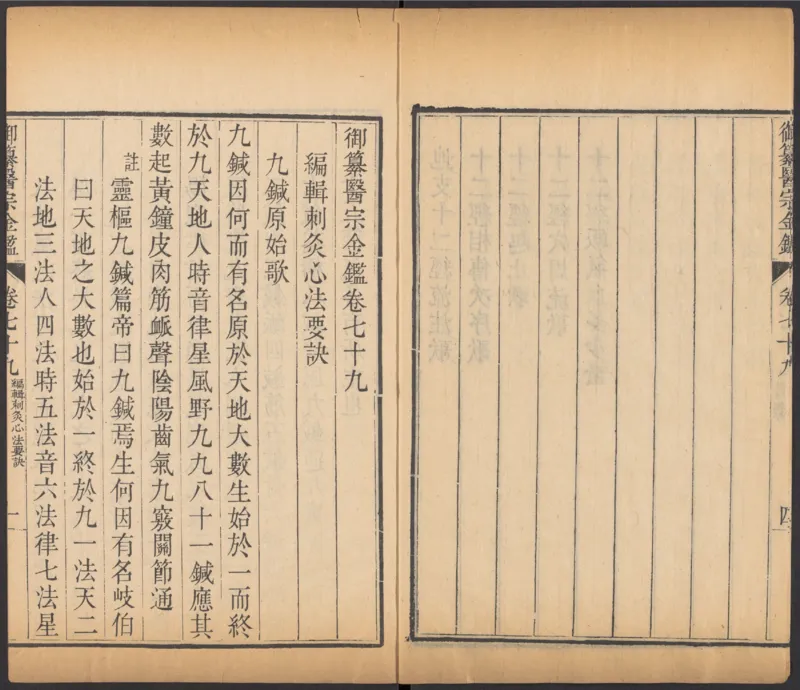 御纂醫宗金鑑
卷七十九
四
御纂醫宗金鑑卷七十九
編輯刺灸心法要訣
九鍼原始歌
九鍼因何而有名原於天地大數生始於一而終
於九天地人時音律星風野九九八十一鍼應其
數起黃鐘皮肉筋衇聲陰陽齒氣九竅關節通
註
靈樞九鍼篇帝曰九鍼焉生何因有名岐伯
曰天地之大數也始於一終於九一法天二
法地三法人四法時五法音六法律七法星
御纂醫宗金鑑
卷七十九
編輯刺灸心法要訣
一